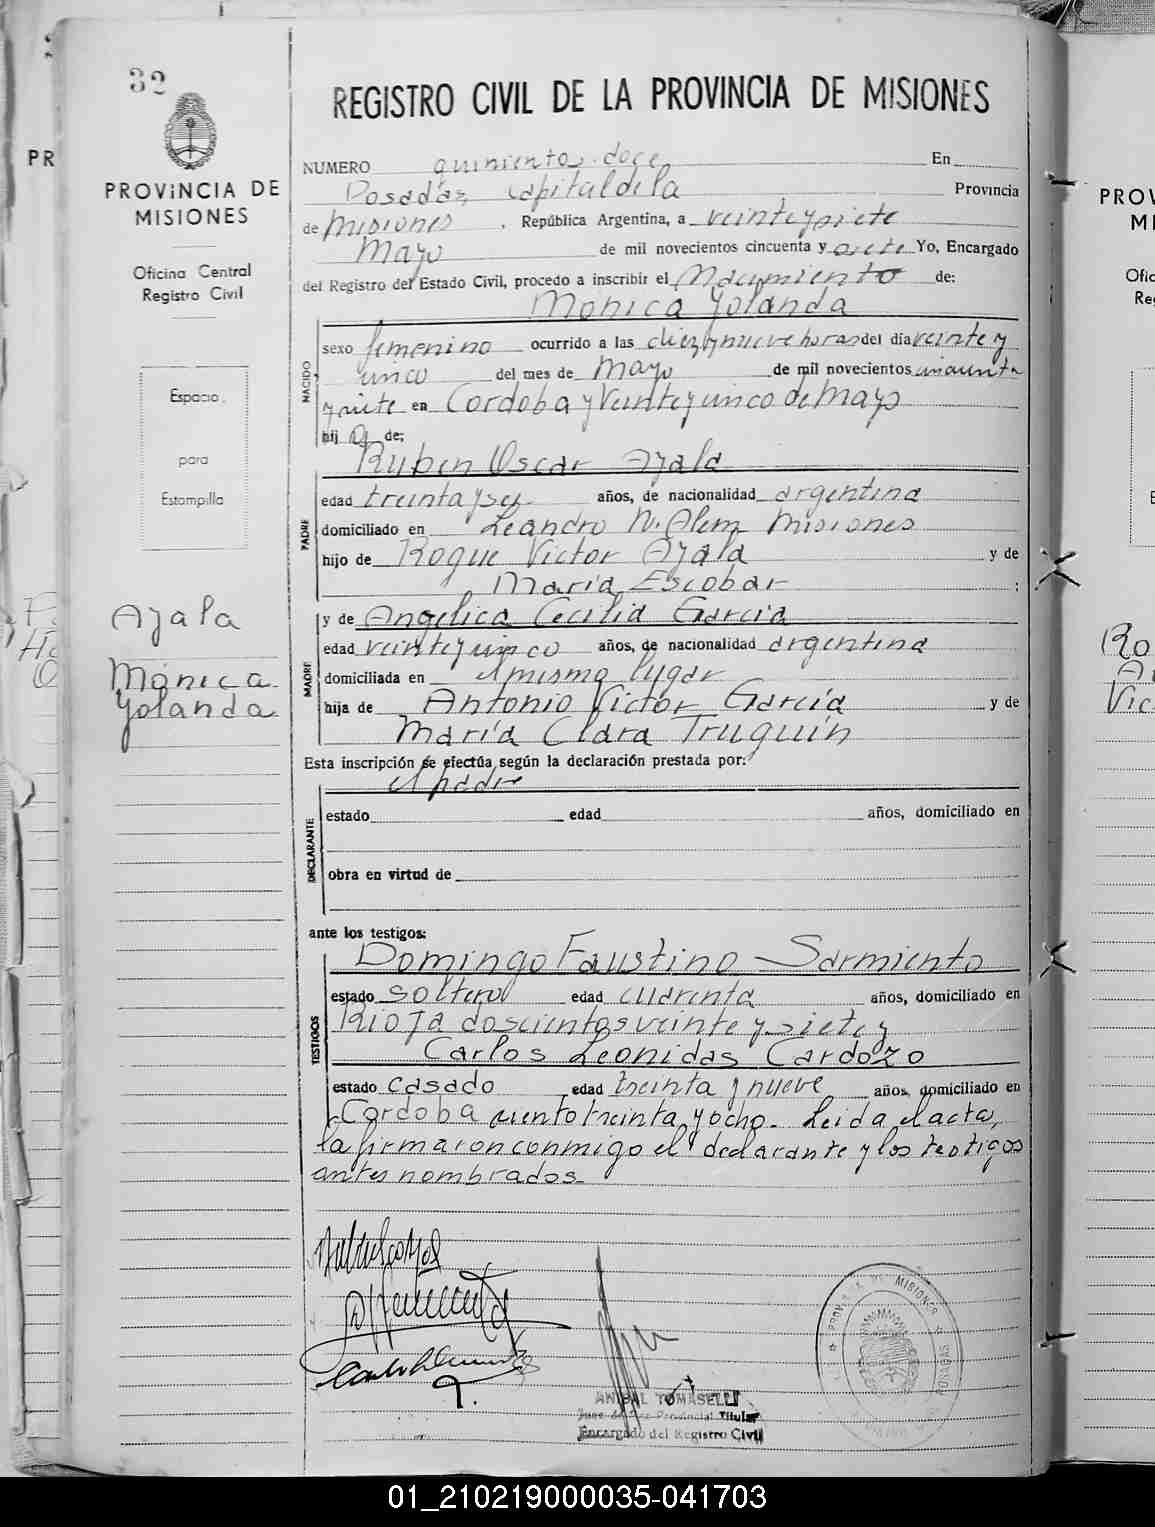 32
PROVINCIA DE
MISIONES
Oficina Central
Registro Civil
Espacio
para
Estampilla
Ayala
Mónica
Yolanda
REGISTRO CIVIL DE LA PROVINCIA DE MISIONES
NUMERO quinientos doce En
Posadas, Capital de la Provincia
de Misiones, República Argentina, a veinte y siete
Mayo de mil novecientos cincuenta y siete Yo, Encargado
del Registro del Estado Civil, procedo a inscribir el Nacimiento de:
Mónica Yolanda
NACIDO
sexo femenino ocurrido a las diez y nueve horas del día veinte y
cinco del mes de Mayo de mil novecientos cincuenta
y siete en Córdoba y Veinte y cinco de Mayo
hija de:
Ruben Oscar Ayala
PADRE
edad treinta y seis años, de nacionalidad argentina
domiciliado en Leandro N. Alem Misiones
hijo de Roque Victor Ayala y de
María Escobar ;
y de Angélica Cecilia García
MADRE
edad veinte y cinco años, de nacionalidad argentina
domiciliada en el mismo lugar
hija de Antonio Victor García y de
María Clara Truquin
Esta inscripción se efectúa según la declaración prestada por:
el padre
DECLARANTE
estado edad años, domiciliado en
obra en virtud de
ante los testigos:
Domingo Faustino Sarmiento
TESTIGOS
estado soltero edad cuarenta años, domiciliado en
Rioja doscientos veinte y siete y
Carlos Leonidas Cardozo
estado casado edad treinta y nueve años, domiciliado en
Córdoba ciento treinta y ocho. Leida el acta,
la firmaron conmigo el declarante y los testigos
antes nombrados.
ANIBAL TOMASELLI
Titular
Encargado del Registro Civil
MISIONES
POSADAS
01_210219000035-041703